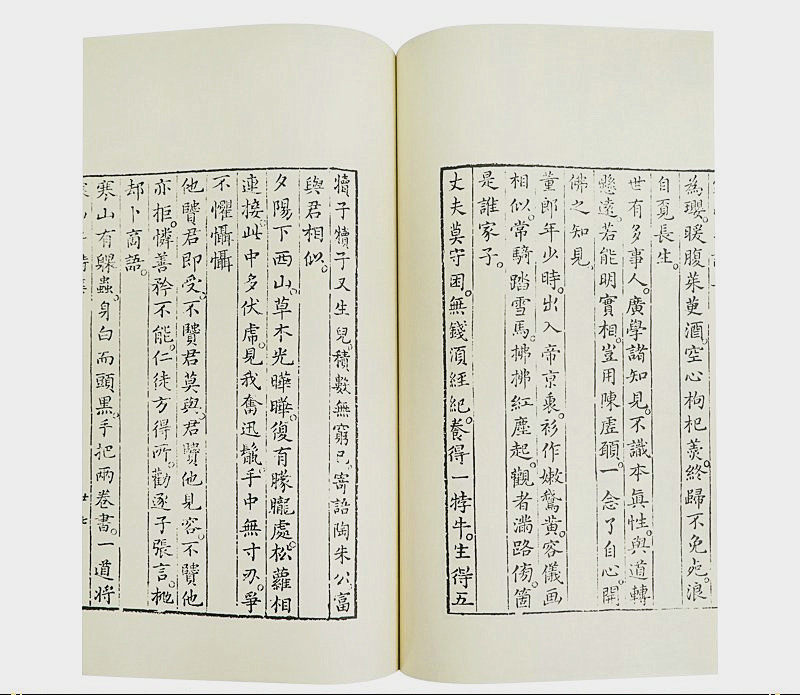 為瓔。暖腹茱萸酒。空心枸杞羹。終歸不免死。浪
自覓長生。
世有多事人。廣學諸知見。不識本真性。與道轉
懸遠。若能明實相。豈用陳虛願。一念了自心。開
佛之知見
董郎年少時。出入帝京裏。衫作嫩鵞黃。容儀画
相似。常騎踏雪馬。拂拂紅塵起。觀者滿路傍。箇
是誰家子。
丈夫莫守困。無錢須經紀。養得一牸牛。生得五
犢子犢子又生兒。積數無窮已。寄語陶朱公。富
與君相似。
夕陽下西山。草木光曄曄。復有朦朧處。松蘿相
連接。此中多伏虎。見我奮迅鬣。手中無寸刃。爭
不懼懾懾
他賢君即受。不賢君莫與。君賢他見容。不賢他
亦拒。憐善矜不能。仁徒方得所。勸逐子張言。抛
却卜商語。
寒山有躶蟲。身白而頭黑。手把兩卷書。一道將